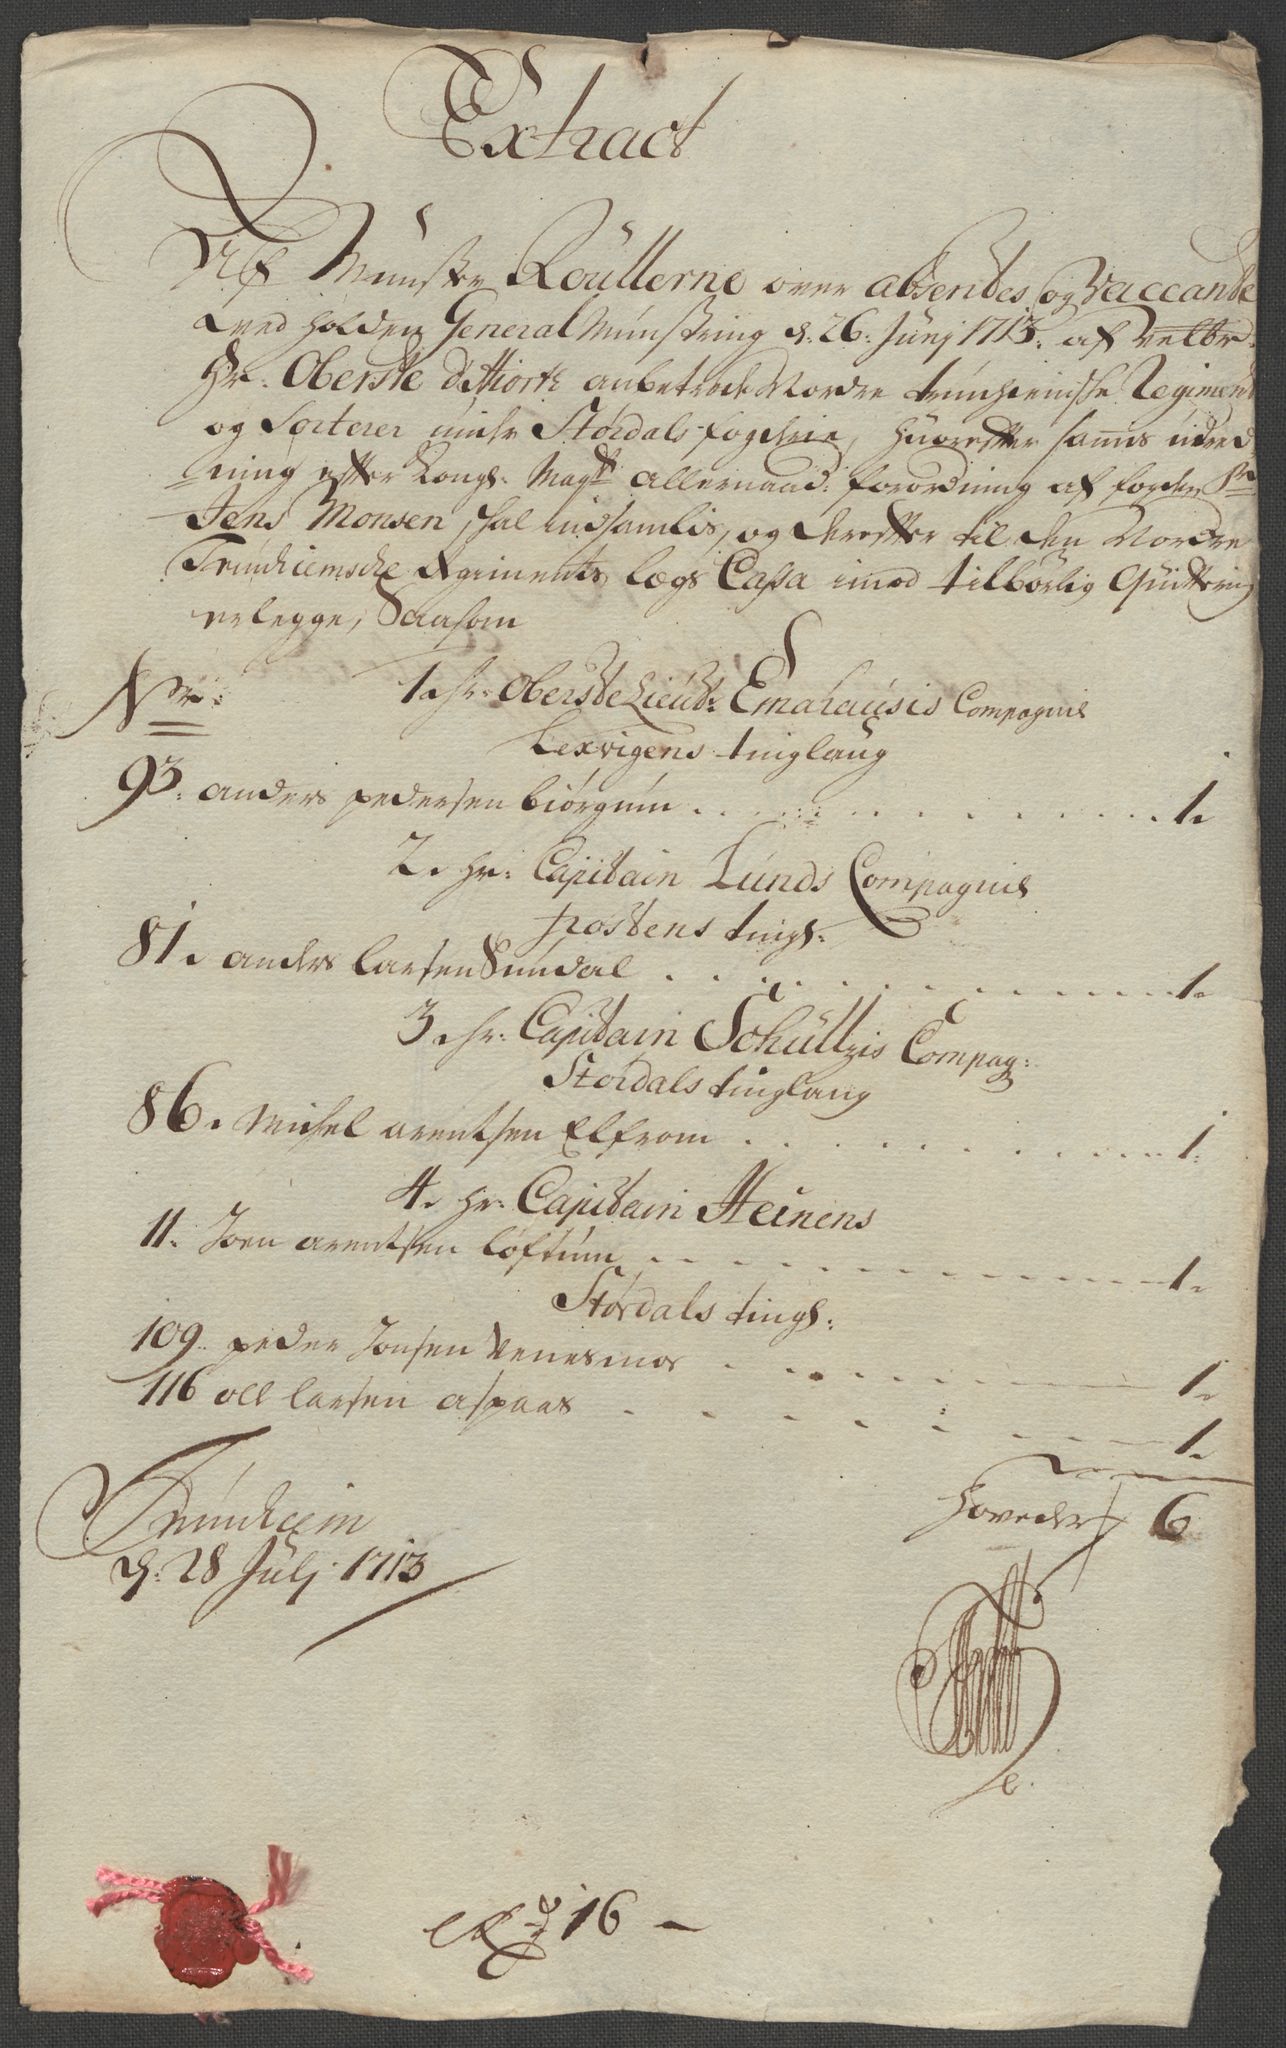 Extract
Af Mùnster Roùllerne over absentes og Vaccante
ved holden General Mùnstring d: 26. Junj 1713. af velbr:
Hr. Oberste d'Hiort anbetroede Nordre trùnhiemske Regiment
og Sorterer ùnder Størdals fogderie, Hùorefter samme ùdred
ning efter Kongl. Maytt allernaad: forordning af fogden Sr
Jens Monsen, skal indsamlis, og derefter til den Nordre
Trùndhiemske Regiments lægs Cassa imod tilbørlig Qùittering
erlegge, Saasom
Nr: 1. Hr. Oberste Lieut: Emahaùsis Compagnie
Lexvigens tinglaùg
93. anders pedersen biörgùm . . . 1.
2. Hr. Capitain Lùnds Compagnie
frostens tingl:
81. anders larsen Sùndal . . . 1.
3. Hr. Capitain Schùltzis Compag:
Størdals tinglaug
86. Michel arentsen Elfrom . . . 1.
4. Hr. Capitain Heinens
11. Joen arentsen løftùm . . . 1.
Størdals tingl:
109. peder Jonsen Venesmos . . . 1.
116 oll larsen aspaas . . . 1.
hoveder 6
Trùndhiem
d. 28 Julj 1713
16 —